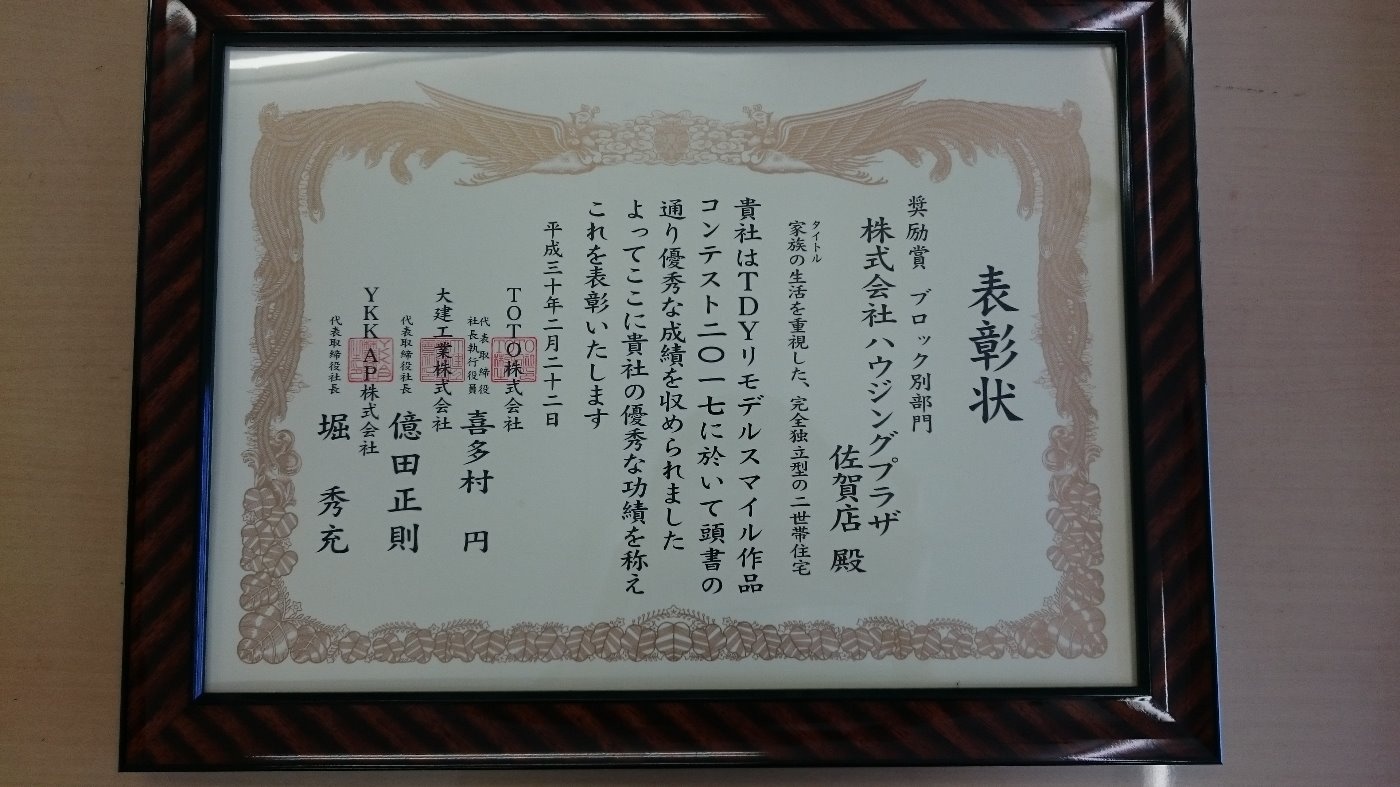 表彰状
奨励賞 ブロック別部門
株式会社ハウジングプラザ
佐賀店 殿
タイトル
家族の生活を重視した、完全独立型の二世帯住宅
貴社はTDYリモデルスマイル作品
コンテスト二〇一七に於いて頭書の
通り優秀な成績を収められました
よってここに貴社の優秀な功績を称え
これを表彰いたします
平成三十年二月二十二日
TOTO株式会社
代表取締役
社長執行役員
喜多村 円
大建工業株式会社
代表取締役社長 億田正則
YKK AP株式会社
代表取締役社長 堀 秀充